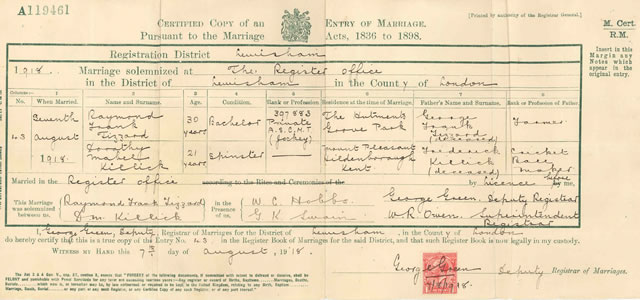 A119461
CERTIFIED COPY OF AN ENTRY OF MARRIAGE.
[Printed by authority of the Registrar General.]
M. Cert.
R.M.
PURSUANT TO THE MARRIAGE ACTS, 1836 TO 1898.
Insert in this Margin any Notes which appear in the original entry.
Registration District Lewisham
1918. Marriage solemnized at The Register office
in the District of Lewisham in the County of London
No. When Married. Name and Surname. Age. Condition. Rank or Profession Residence at the time of Marriage. Father's Name and Surname. Rank or Profession of Father.
43 Seventh August 1918. Raymond Frank Tizzard 30 years Bachelor 307883 Private A.S.C.M.T (Jockey) The Hutments Grove Park George Frank Tizzard (deceased) Farmer
Dorothy Mabel Killick 21 years Spinster Mount Pleasant Hildenborough Kent Frederick Killick (deceased) Cricket Ball maker
Married in the Register office according to the Rites and Ceremonies of the by licence before by me,
This Marriage was solemnized between us, Raymond Frank Tizzard D. M. Killick in the Presence of us, W. C. Hobbs G K Swain George Green, Deputy Registrar W R Owen. Superintendent Registrar
I, George Green, Deputy, Registrar of Marriages for the District of Lewisham, in the County of London
do hereby certify that this is a true copy of the Entry No. 43, in the Register Book of Marriages for the said District, and that such Register Book is now legally in my custody.
WITNESS MY HAND this 7th day of August, 1918.
George Green Deputy Registrar of Marriages.
7/8/1918.